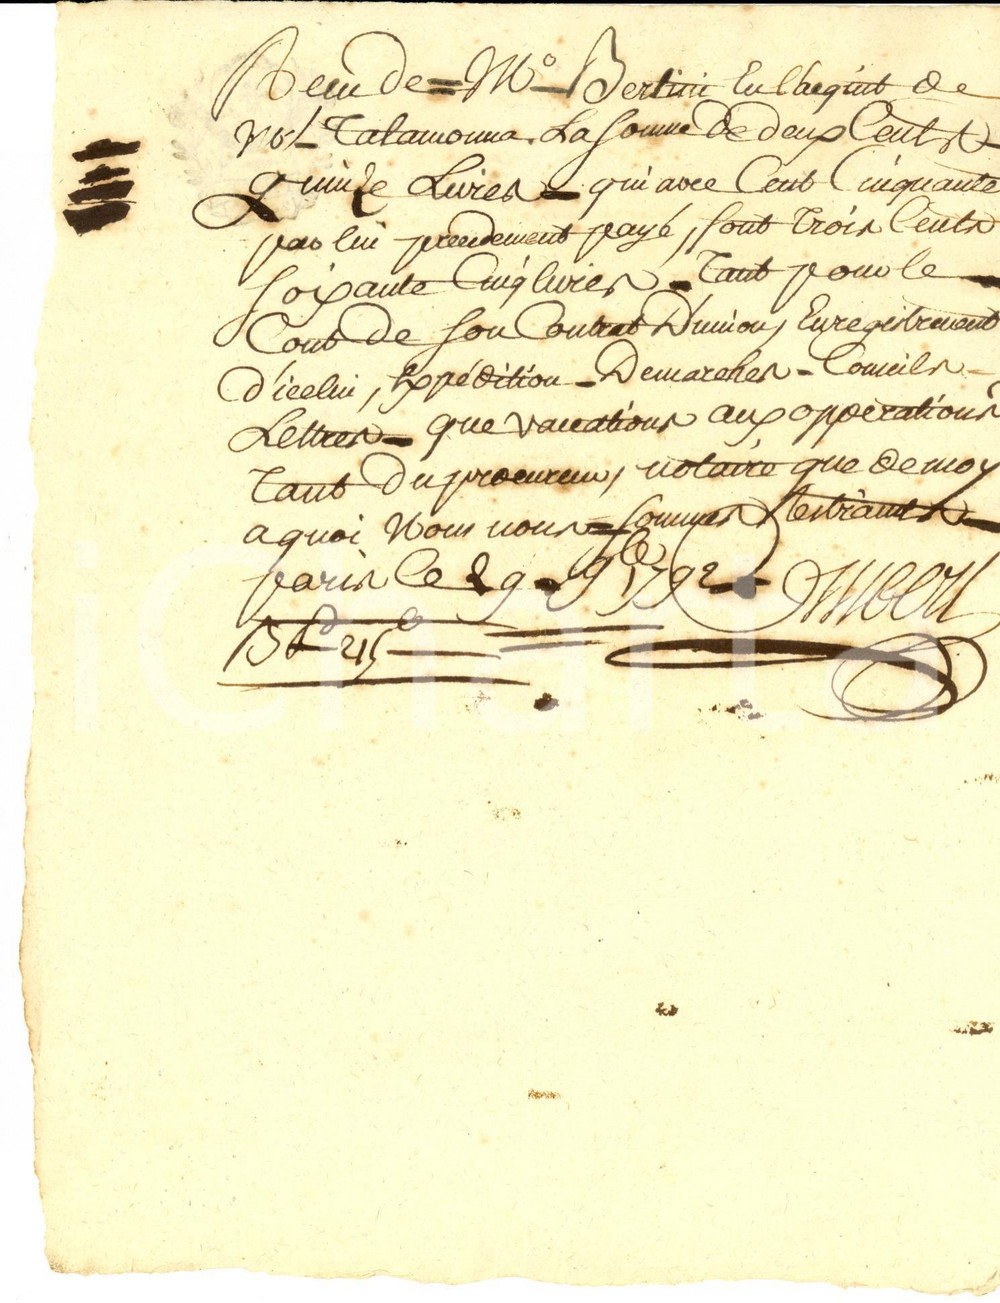 Recu de = Mr Bertini En l'acquit de
Talamonna. La Somme de deux Cents
quinze Livres - qui avec Cent Cinquante
par lui precedement payé, sont Trois Cents
soixante Cinq livres - Tant pour le
Cout de son Contrat D'union, Enregistrement
d'icelui, Expédition - Demarches - Conseils -
Lettres - que vacations aux opperations
Tant Du procureur, notaire que de moy
a quoi Nous nous sommes restraints
paris le 29 9bre 1792 - Imbert
Bd 215
icharta